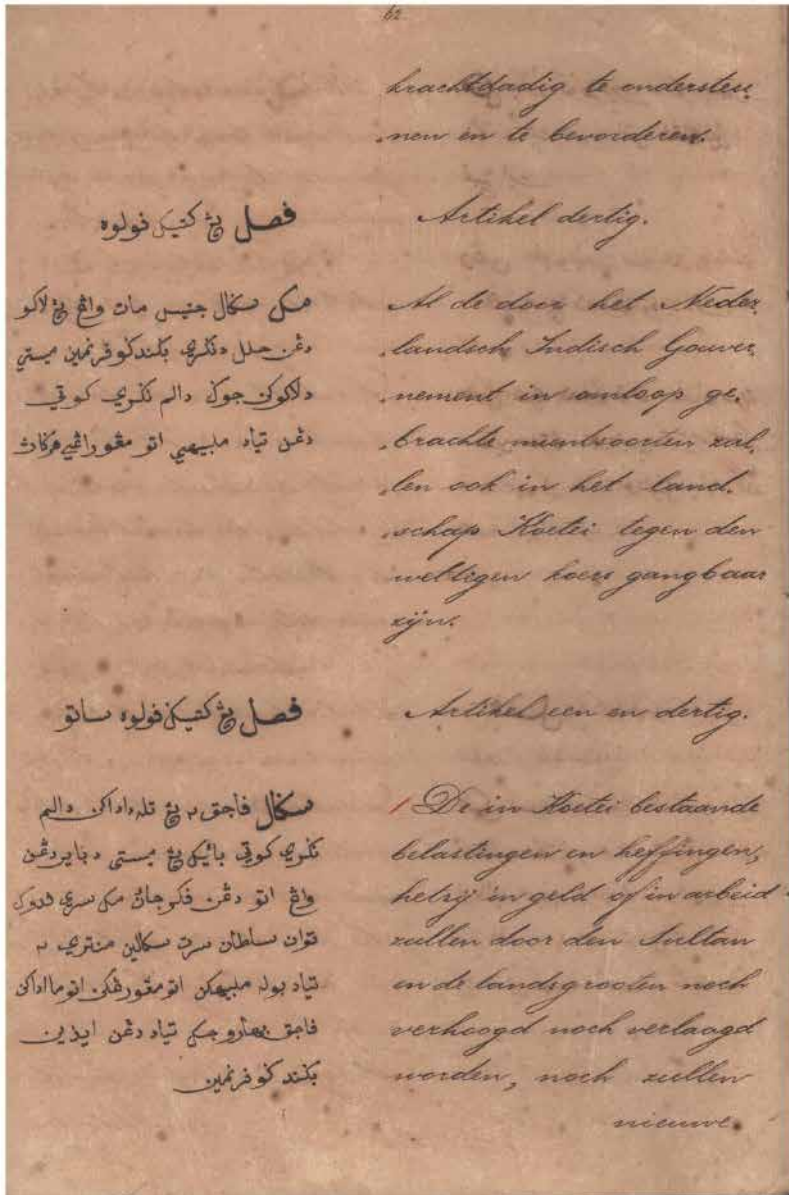 62
فصل يڠ كتيݢ فولوه
مك سݢال جنيس مات واڠ يڠ لاكو
دڠن حلل دنݢري بݢندا ݢوفرنمين ميستي
دلاكوكن جوݢ دالم نݢري كوتي
دڠن تياد ملبيهي اتو مڠوراڠي هرݢاڽ
فصل يڠ كتيݢ فولوه ساتو
سݢال فاجق٢ يڠ تله داداكن دالم
نݢري كوتي بايك يڠ ميستي دباير دڠن
واڠ اتو دڠن فكرجاان مك سري فدوك
توان سلطان سرت سكالين منتري٢
تياد بوله ملبيهكن اتو مڠورڠكن اتو مااداكن
فاجق بهارو جك تياد دڠن ايذين
بݢندا ݢوفرنمين
krachtdadig te ondersteu„
„nen en te bevorderen.
Artikel dertig.
Al de door het Neder„
„landsch Indisch Gouver„
„nement in omloop ge„
„brachte muntsoorten zul„
„len ook in het land„
„schap Koetei tegen den
wettigen koers gangbaar
zijn.
Artikel een en dertig.
De in Koetei bestaande
belastingen en heffingen,
hetzij in geld of in arbeid
zullen door den Sultan
en de landsgrooten noch
verhoogd noch verlaagd
worden, noch zullen
nieuwe